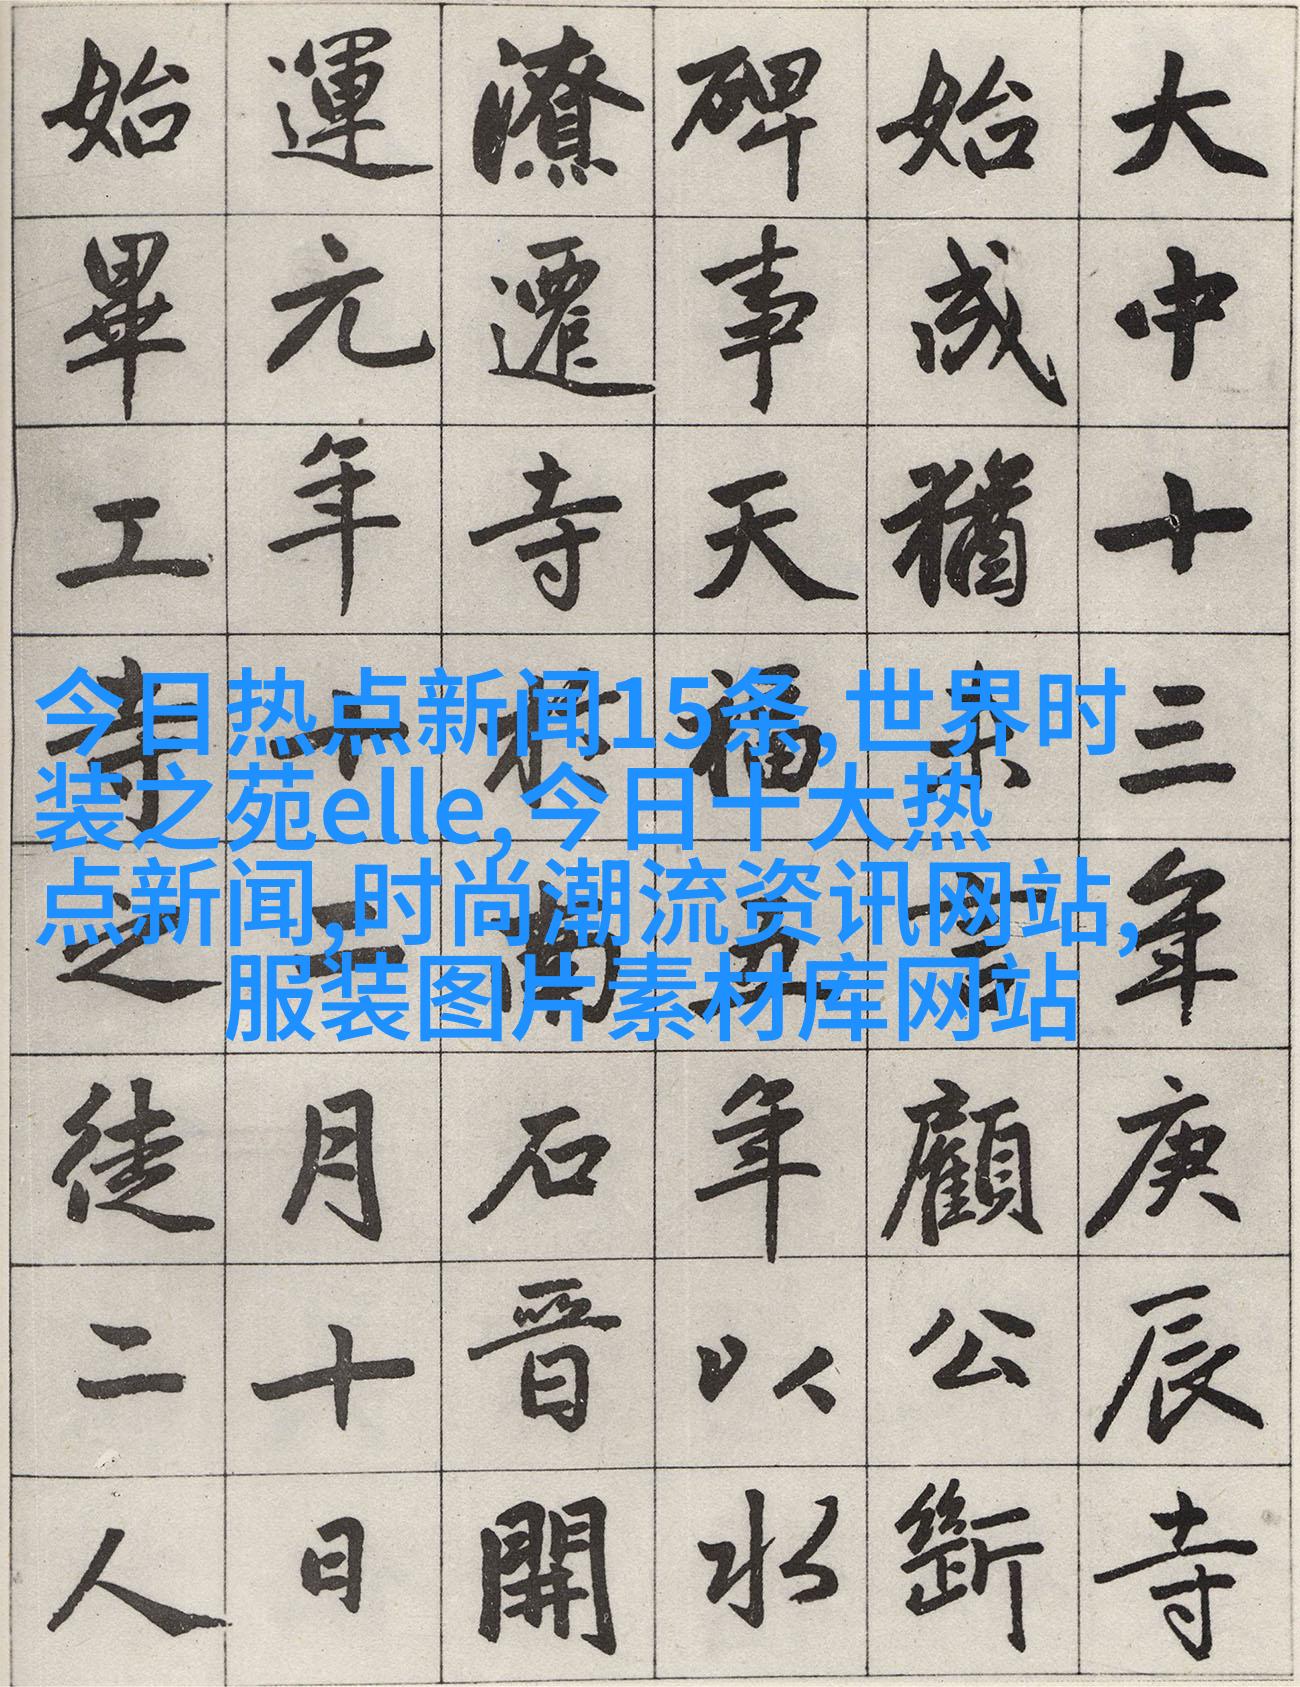 大中十三年庚辰寺
始成猶未言顧公斷
碑事天福五年以水
潦遷寺於南石晉開
運元年十二月十日
始畢工寺之徒二人
今日热点新闻15条,世界时
装之苑elle,今日十大热
点新闻,时尚潮流资讯网站,
服装图片素材库网站